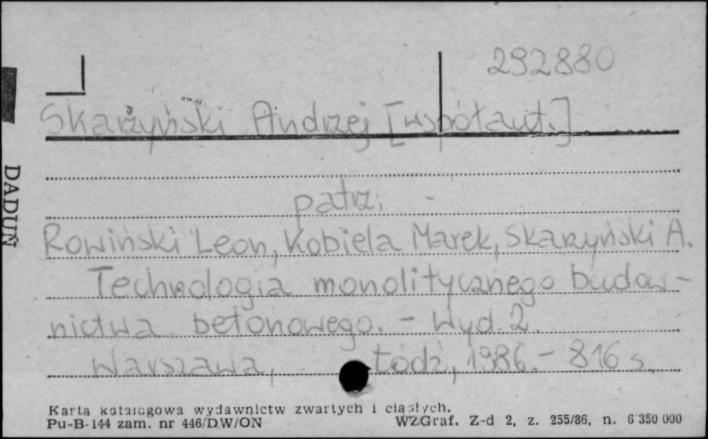 292880
Skarżyński Andrzej [współaut.]
patrz:
Rowiński Leon, Kobiela Marek, Skarżyński A.
Technologia monolitycznego budow-
nictwa betonowego. - Wyd. 2.
Warszawa, Łódź, 1986. - 816 s.
DADUŃ
Karta katalogowa wydawnictw zwartych i ciągłych.
Pu-B-144 zam. nr 446/DW/ON WZGraf. Z-d 2, z. 255/86, n. 6 350 000